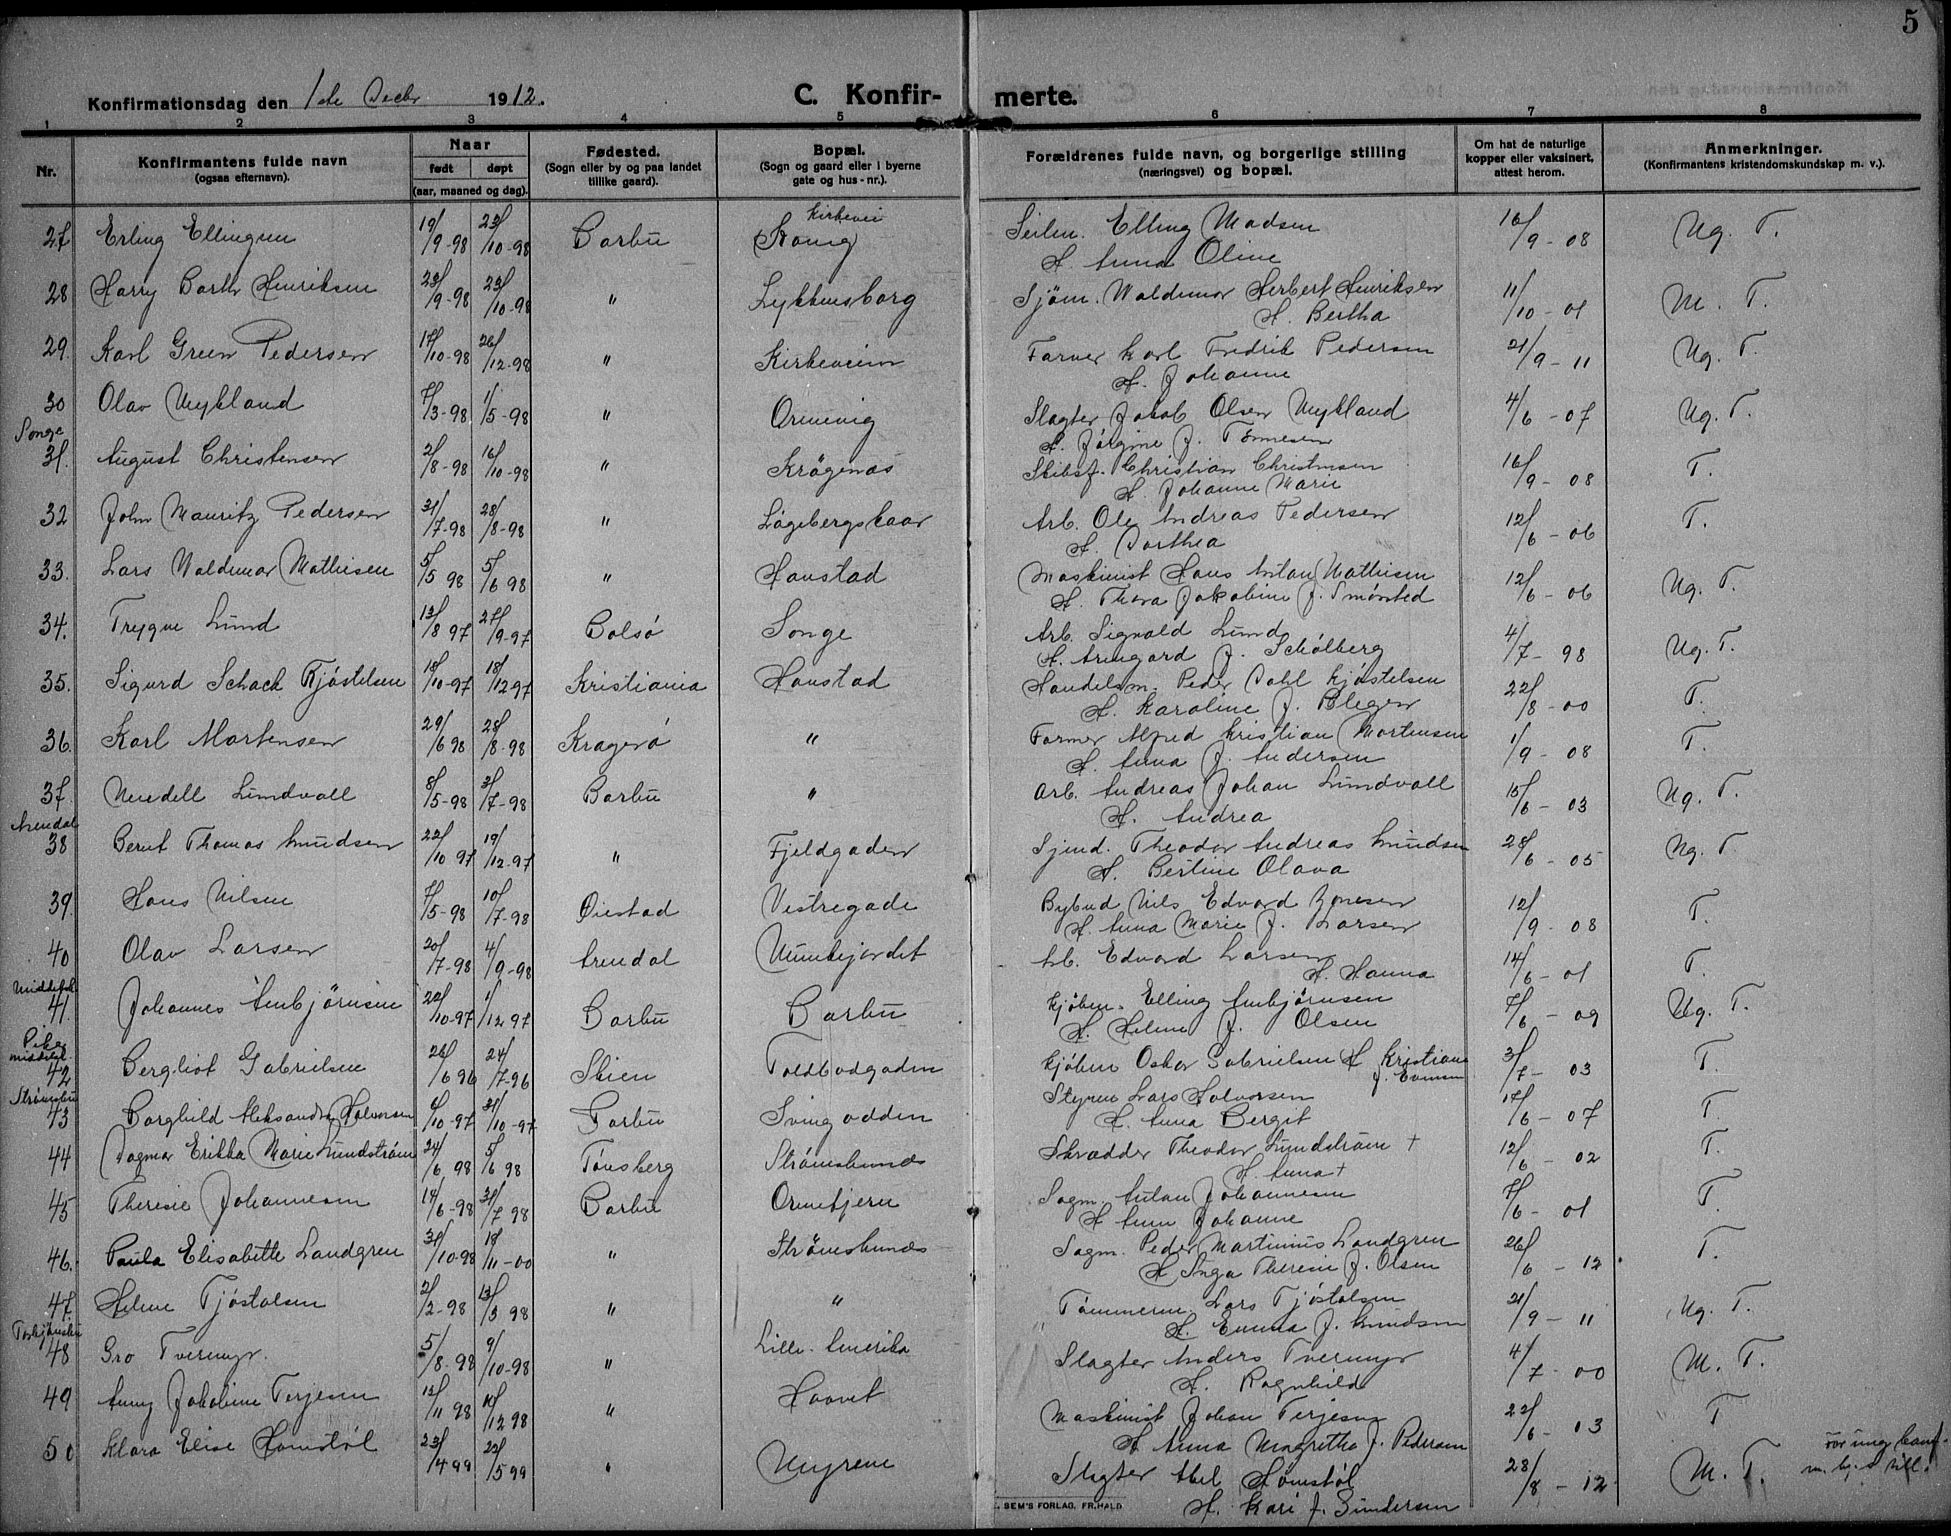 5
Konfirmationsdag den 1ste Decbr 1912.
C. Konfir- merte.
1 2 3 4 5 6 7 8
Nr.
Konfirmantens fulde navn
(ogsaa efternavn).
Naar
født døpt
(aar, maaned og dag).
Fødested.
(Sogn eller by og paa landet
tillike gaard).
Bopæl.
(Sogn og gaard eller i byerne
gate og hus-nr.).
Forældrenes fulde navn, og borgerlige stilling
(næringsvei) og bopæl.
Om hat de naturlige
kopper eller vaksinert,
attest herom.
Anmerkninger.
(Konfirmantens kristendomskundskap m. v.).
Kirkevei
27 Erling Ellingsen 19/9-98 23/10-98 Barbu Seilm. Elling Madsen 16/9-08 Ng. T.
H. Anna Oline
28 Harry Barth Henriksen 23/9-98 23/10-98 " Lykkensborg Sjøm. Waldemar Herbert Henriksen 11/10-01 M. T.
H. Bertha
29. Karl Green Pedersen 17/10-98 26/12-98 " Kirkeveien Farver Karl Fredrik Pedersen 21/9-11 Ng. T.
H. Johanne
30 Olav Nykland 7/3-98 1/5-98 " Ormevig Slagter Jakob Olsen Nykland 4/6-07 Ng. T.
H. Jørgine f. Tønnesen
Songe
31. August Christensen 2/8-98 16/10-98 " Krøgenæs Skibsf. Christian Christensen 16/9-08 T.
H. Johanne Marie
32 John Mauritz Pedersen 31/7-98 28/8-98 " Lögebergskaar Arb. Ole Andreas Pedersen 12/6-06 T.
H. Dorthea
33. Lars Waldemar Mathisen 5/5 98 5/6 98 " Haustad Maskinist Hans Anton Mathisen 12/6-06 Ng. T.
H. Thora Jakobine f. Smørsted
34. Trygve Lund 13/8 97 27/9-97 Bolsø Songe Arb. Sigvald Lund 4/7-98 Ng. T.
H. Armgard f. Schølberg
35. Sigurd Schack Kjøstelsen 18/10-97 18/12 97 Kristiania Haustad Handelsm. Peder Dahl Kjøstelsen 22/8-00 T.
H. Karoline f. Blegen
36. Karl Martensen 29/6 98 28/8-98 Kragerø " Former Alfred Kristian Martensen 1/9-08 T.
H. Anna f. Andersen
37. Wendell Lundvall 8/5-98 31/7-98 Barbu " Arb. Andreas Johan Lundvall 15/6-03 Ng. T.
H. Andrea
Arendal
38 Bernt Thomas Knudsen 22/10 97 19/12-97 " Fjeldgaden Sjmd. Theodor Andreas Knudsen 28/6-05 Ng. T
H. Bertine Olava
39. Hans Nilsen 7/5-98 10/7-98 Øiestad Vestregade Bybud Nils Edvard Jonesen 12/9-08 T.
H. Anna Marie f. Larsen
40 Olav Larsen 20/7-98 4/9-98 Arendal Munkejordet Arb. Edvard Larsen 14/6-01 T.
H. Hanna
41. Johannes Ambjørnsen 22/10-97 1/12 97 Barbu Barbu Kjøbm. Elling Ambjørnsen 7/6-09 Ng. T.
H. Helene f. Olsen
Piker
42 Bergliot Gabrielsen 26/6 96 24/7-96 Skien Toldbodgaden Kjøbm Oskar Gabrielsen H Kristiane 3/7-03 T.
f. Evensen
Strømsbu
43 Borghild Aleksandra Halvorsen 6/10-97 31/10-97 Barbu Svingodden Styrm Lars Halvorsen 17/6-07 T.
H. Anna Bergit
44 Dagmar Erikka Marie Lundstrøm 24/6 98 5/6 98 Tønsberg Strømsbunes Skrædder Theodor Lundstrøm + 12/6-02 T.
H. Anna +
45 Therese Johannesen 14/6-98 31/7 98 Barbu Ormetjern Sagm. Anton Johannesen 7/6-01 T.
H Anne Johanne
46. Paula Elisabette Landgren 31/10-98 18/11-00 " Strømsbunes Sagm. Peder Martinius Landgren 26/6-12 T.
H Inga Therese f. Olsen
47. Helene Tjøstolsen 2/2-98 13/3 98 " " Tømmerm. Lars Tjøstolsen 21/9-11 Ng. T.
H. Emma f. Knudsen
Torbjørnsbu
48 Gro Tveremyr. 5/8-98 9/10-98 " Lille-Amerika Slagter Anders Tveremyr 4/7-00 M. T.
H. Ragnhild
49 Anny Jakobine Terjesen 12/11 98 10/12 98 " Haavet Maskinist Johan Terjesen 22/6-03 T
H Anna Magritha f. Pedersen
50 Klara Elise Hømstøl 23/4 99 22/5 99 " Myrene Slagter Abel Hømstøl 28/8-12 M. T.
H. Kari f. Gundersen
E. SEM'S FORLAG, FR.HALD